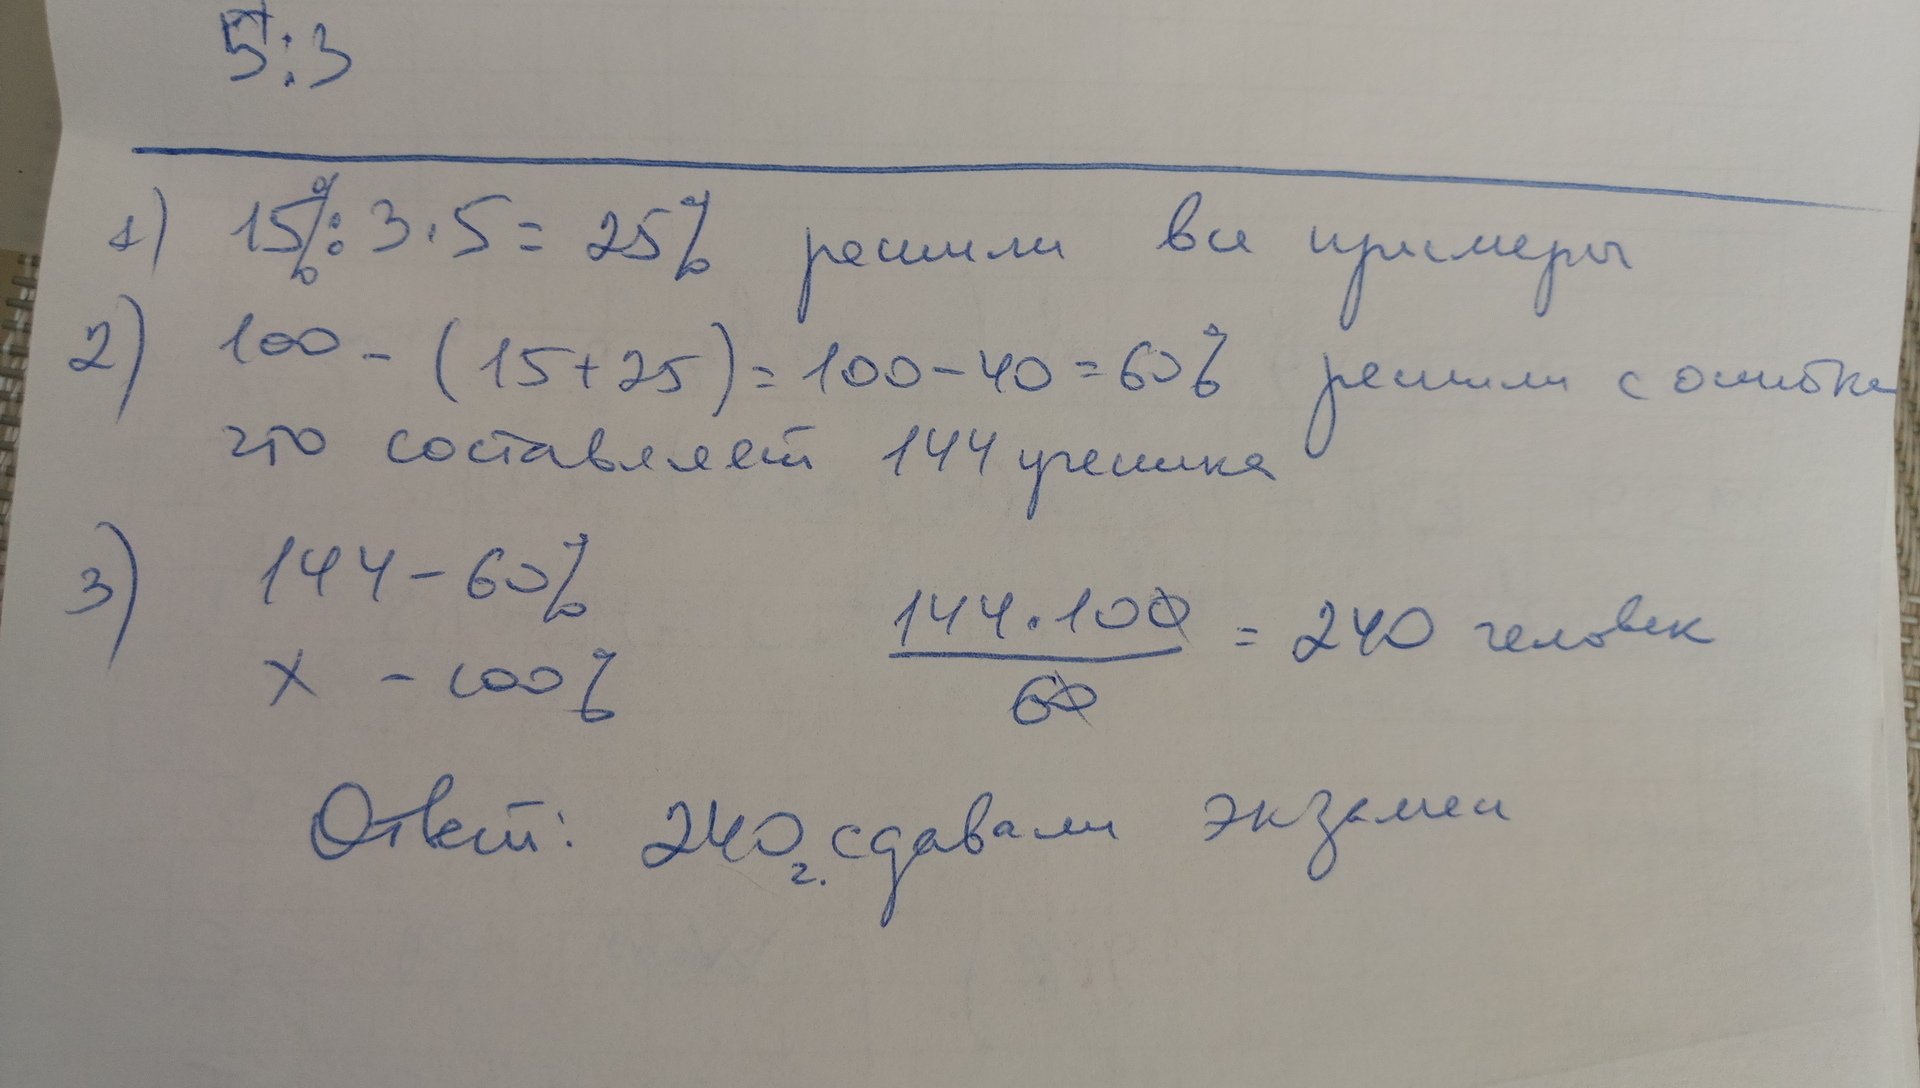 5:3
1) 15%:3·5=25% решили все примеры
2) 100-(15+25)=100-40=60% решили с ошибка
это составляет 144 ученика
3) 144-60%
x - 100%
144·100
60
= 240 человек
Ответ: 240 ч. сдавали экзамен